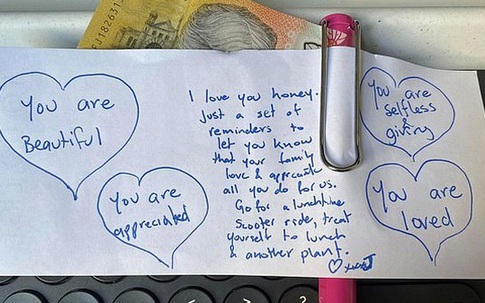 EJ182631
You are
Beautiful
You are
appreciated
I love you honey.
Just a set of
reminders to
let you know
that your family
love & appreciate
all you do for us.
Go for a lunchtime
scooter ride, treat
yourself to lunch
& another plant.
You are
selfless
&
giving
You are
loved